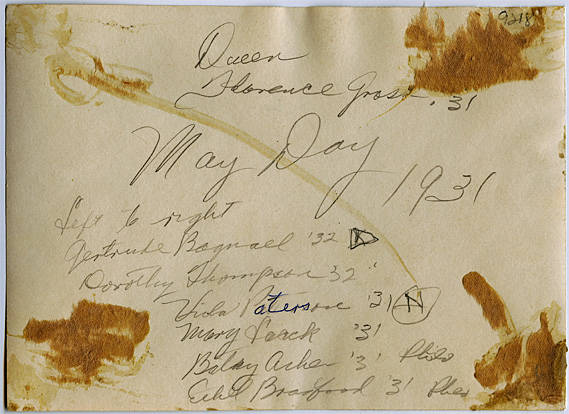 9218
Queen
Florence Gross '31
May Day
1931
left to right
Gertrude Bagnael '32
Dorothy Thompson 32
Viola Paterson '31 N
Mary '31
Asher '31 Philo
Ethel Bradford '31